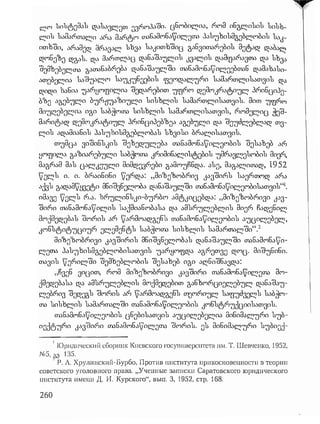 ლო სისტემას დასავლეთ ევროპაში. ცნობილია, რომ ინგლისის სისხ-
ლის სამართალი არა მარტო თანამონაწილეთა პასუხისმგებლობის საკ-
ითხში, არამედ მრავალ სხვა საკითხშიც განვითარების მეტად დაბალ
დონეზე დგას. და მართლაც დანაშაულის კვალის დამფარავთა და სხვა
შემხებელთა გათანაბრება დანაშაულში თანამონაწილეებთან დამახასი-
ათებელია საშუალო საუკუნეების ფეოდალური სამართლისათვის და
დიდი ხანია უარყოფილია შედარებით უფრო დემოკრატიულ პრინციპე-
ბზე აგებული ბურჟუაზიული სისხლის სამართლისათვის. მით უფრო
მიუღებელია იგი საბჭოთა სისხლის სამართლისათვის, რომელიც ჭეშ-
მარიტად დემოკრატიულ პრინციპებზეა აგებული და შეუძლებლად თვ-
ლის ადამიანის პასუხისმგებლობას სხვისი ბრალისათვის.
თუმცა ვიშინსკის შეხედულება თანამონაწილეობის შესახებ არ
ყოფილა გაზიარებული საბჭოთა კრიმინალისტების უმრავლესობის მიერ,
მაგრამ მას ცალკეული მიმდევრები გამოუჩნდა. ასე, მაგალითად, 1952
წელს ი. ი. ბრაინინი წერდა: „მიზეზობრივ კავშირს საერთოდ არა
აქვს გადამწყვეტი მნიშვნელობა დანაშაულში თანამონაწილეობისათვის“¹.
იმავე წელს რ.ა. ხრულინსკი-ბურბო ამტკიცებდა: „მიზეზობრივი კავ-
შირი თანამონაწილის საქმიანობასა და ამსრულებლის მიერ ჩადენილ
მოქმედებას შორის არ წარმოადგენს თანამონაწილეობის აუცილებელ,
კონსტიტუციურ ელემენტს საბჭოთა სისხლის სამართალში“.²
მიზეზობრივი კავშირის მნიშვნელობას დანაშაულში თანამონაწი-
ლეთა პასუხისმგებლობისათვის უარყოფდა აგრეთვე დოც. მაჩუნინი.
თავის წერილში შემხებლობის შესახებ იგი აღნიშნავდა:
„ჩვენ ვიცით, რომ მიზეზობრივი კავშირი თანამონაწილეთა მო-
ქმედებასა და ამსრულებლის მოქმედებით განხორციელებულ დანაშაუ-
ლებრივ შედეგს შორის არ წარმოადგენს თეორიულ საფუძველს საბჭო-
თა სისხლის სამართალში თანამონაწილეობის კონსტრუქციისათვის.
თანამონაწილეობის ცნებისათვის აუცილებელია მინიმალური სუბ-
იექტური კავშირი თანამონაწილეთა შორის. ეს მინიმალური სუბიექ-
¹ Юридический сборник Киевского госуниверситета им. Т. Шевченко, 1952,
№5, გვ. 135.
² Р. А. Хрулинский-Бурбо, Против института прикосновенности в теории
советского уголовного права. „Ученные записки Саратовского юридического
института имени Д. И. Курского“, вып. 3, 1952, стр. 168.
260